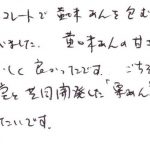 コレートで黄味あんを包む
べました。 黄味あんの甘さ
しく良かったです。 ごち
室と共同開発した「栗あん
たいです。